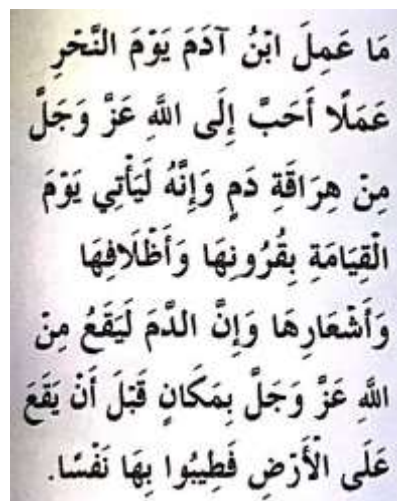 مَا عَمِلَ ابْنُ آدَمَ يَوْمَ النَّحْرِ
عَمَلًا أَحَبَّ إِلَى اللَّهِ عَزَّ وَجَلَّ
مِنْ هِرَاقَةِ دَمٍ وَإِنَّهُ لَيَأْتِي يَوْمَ
الْقِيَامَةِ بِقُرُونِهَا وَأَظْلَافِهَا
وَأَشْعَارِهَا وَإِنَّ الدَّمَ لَيَقَعُ مِنْ
اللَّهِ عَزَّ وَجَلَّ بِمَكَانٍ قَبْلَ أَنْ يَقَعَ
عَلَى الْأَرْضِ فَطِيبُوا بِهَا نَفْسًا.